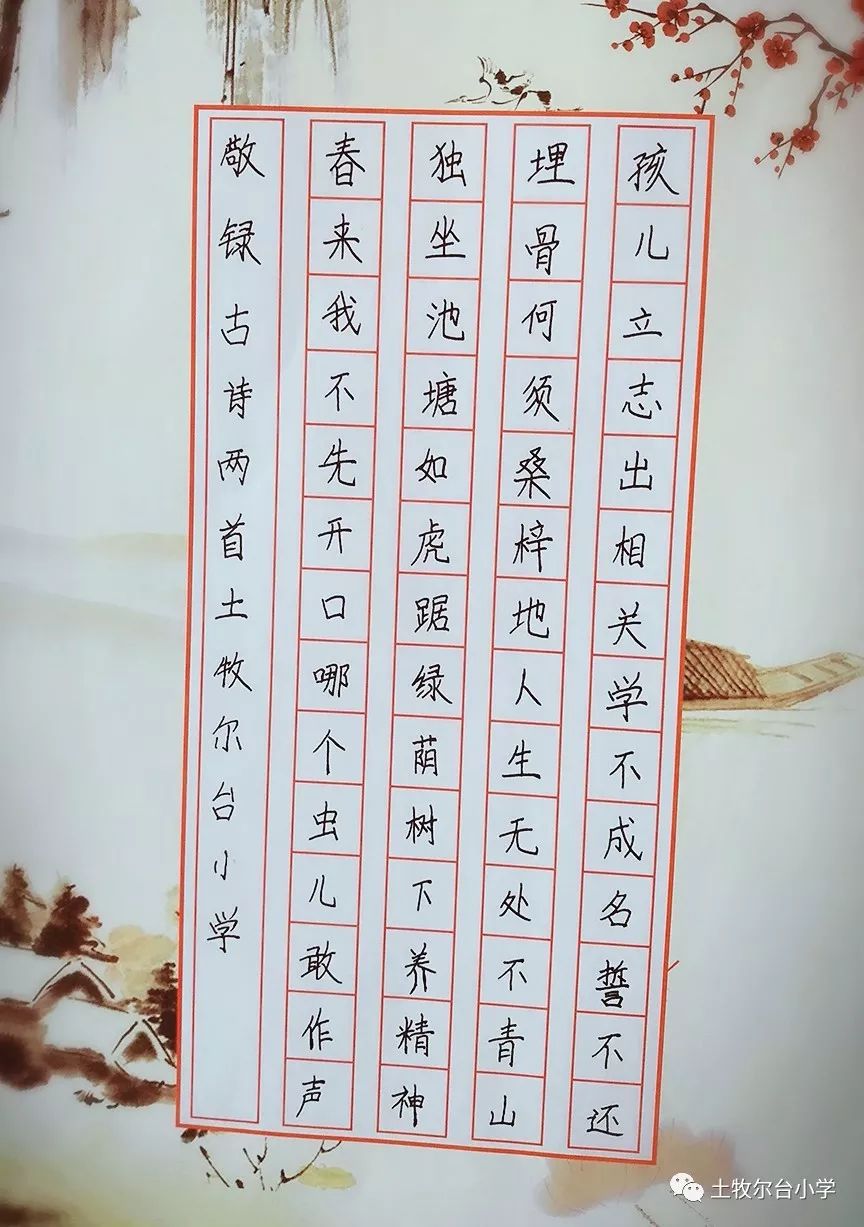 孩儿立志出相关学不成名誓不还
埋骨何须桑梓地人生无处不青山
独坐池塘如虎踞绿荫树下养精神
春来我不先开口哪个虫儿敢作声
敬録古诗两首土牧尔台小学
土牧尔台小学